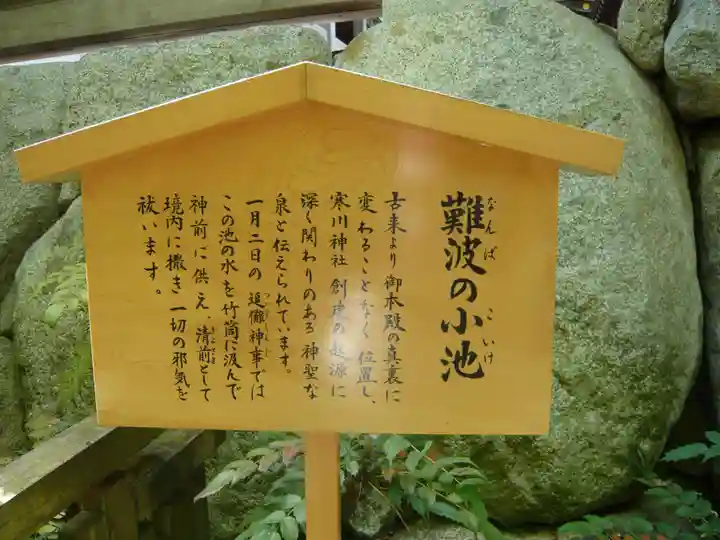 難波の小池
なんば こいけ
古来より御本殿の真裏に
変わることなく位置し、
寒川神社創建の起源に
深く関わりのある神聖な
泉と伝えられています。
一月二日の追儺神事では
この池の水を竹筒に汲んで
神前に供え、清前として
境内に撒き一切の邪気を
祓います。